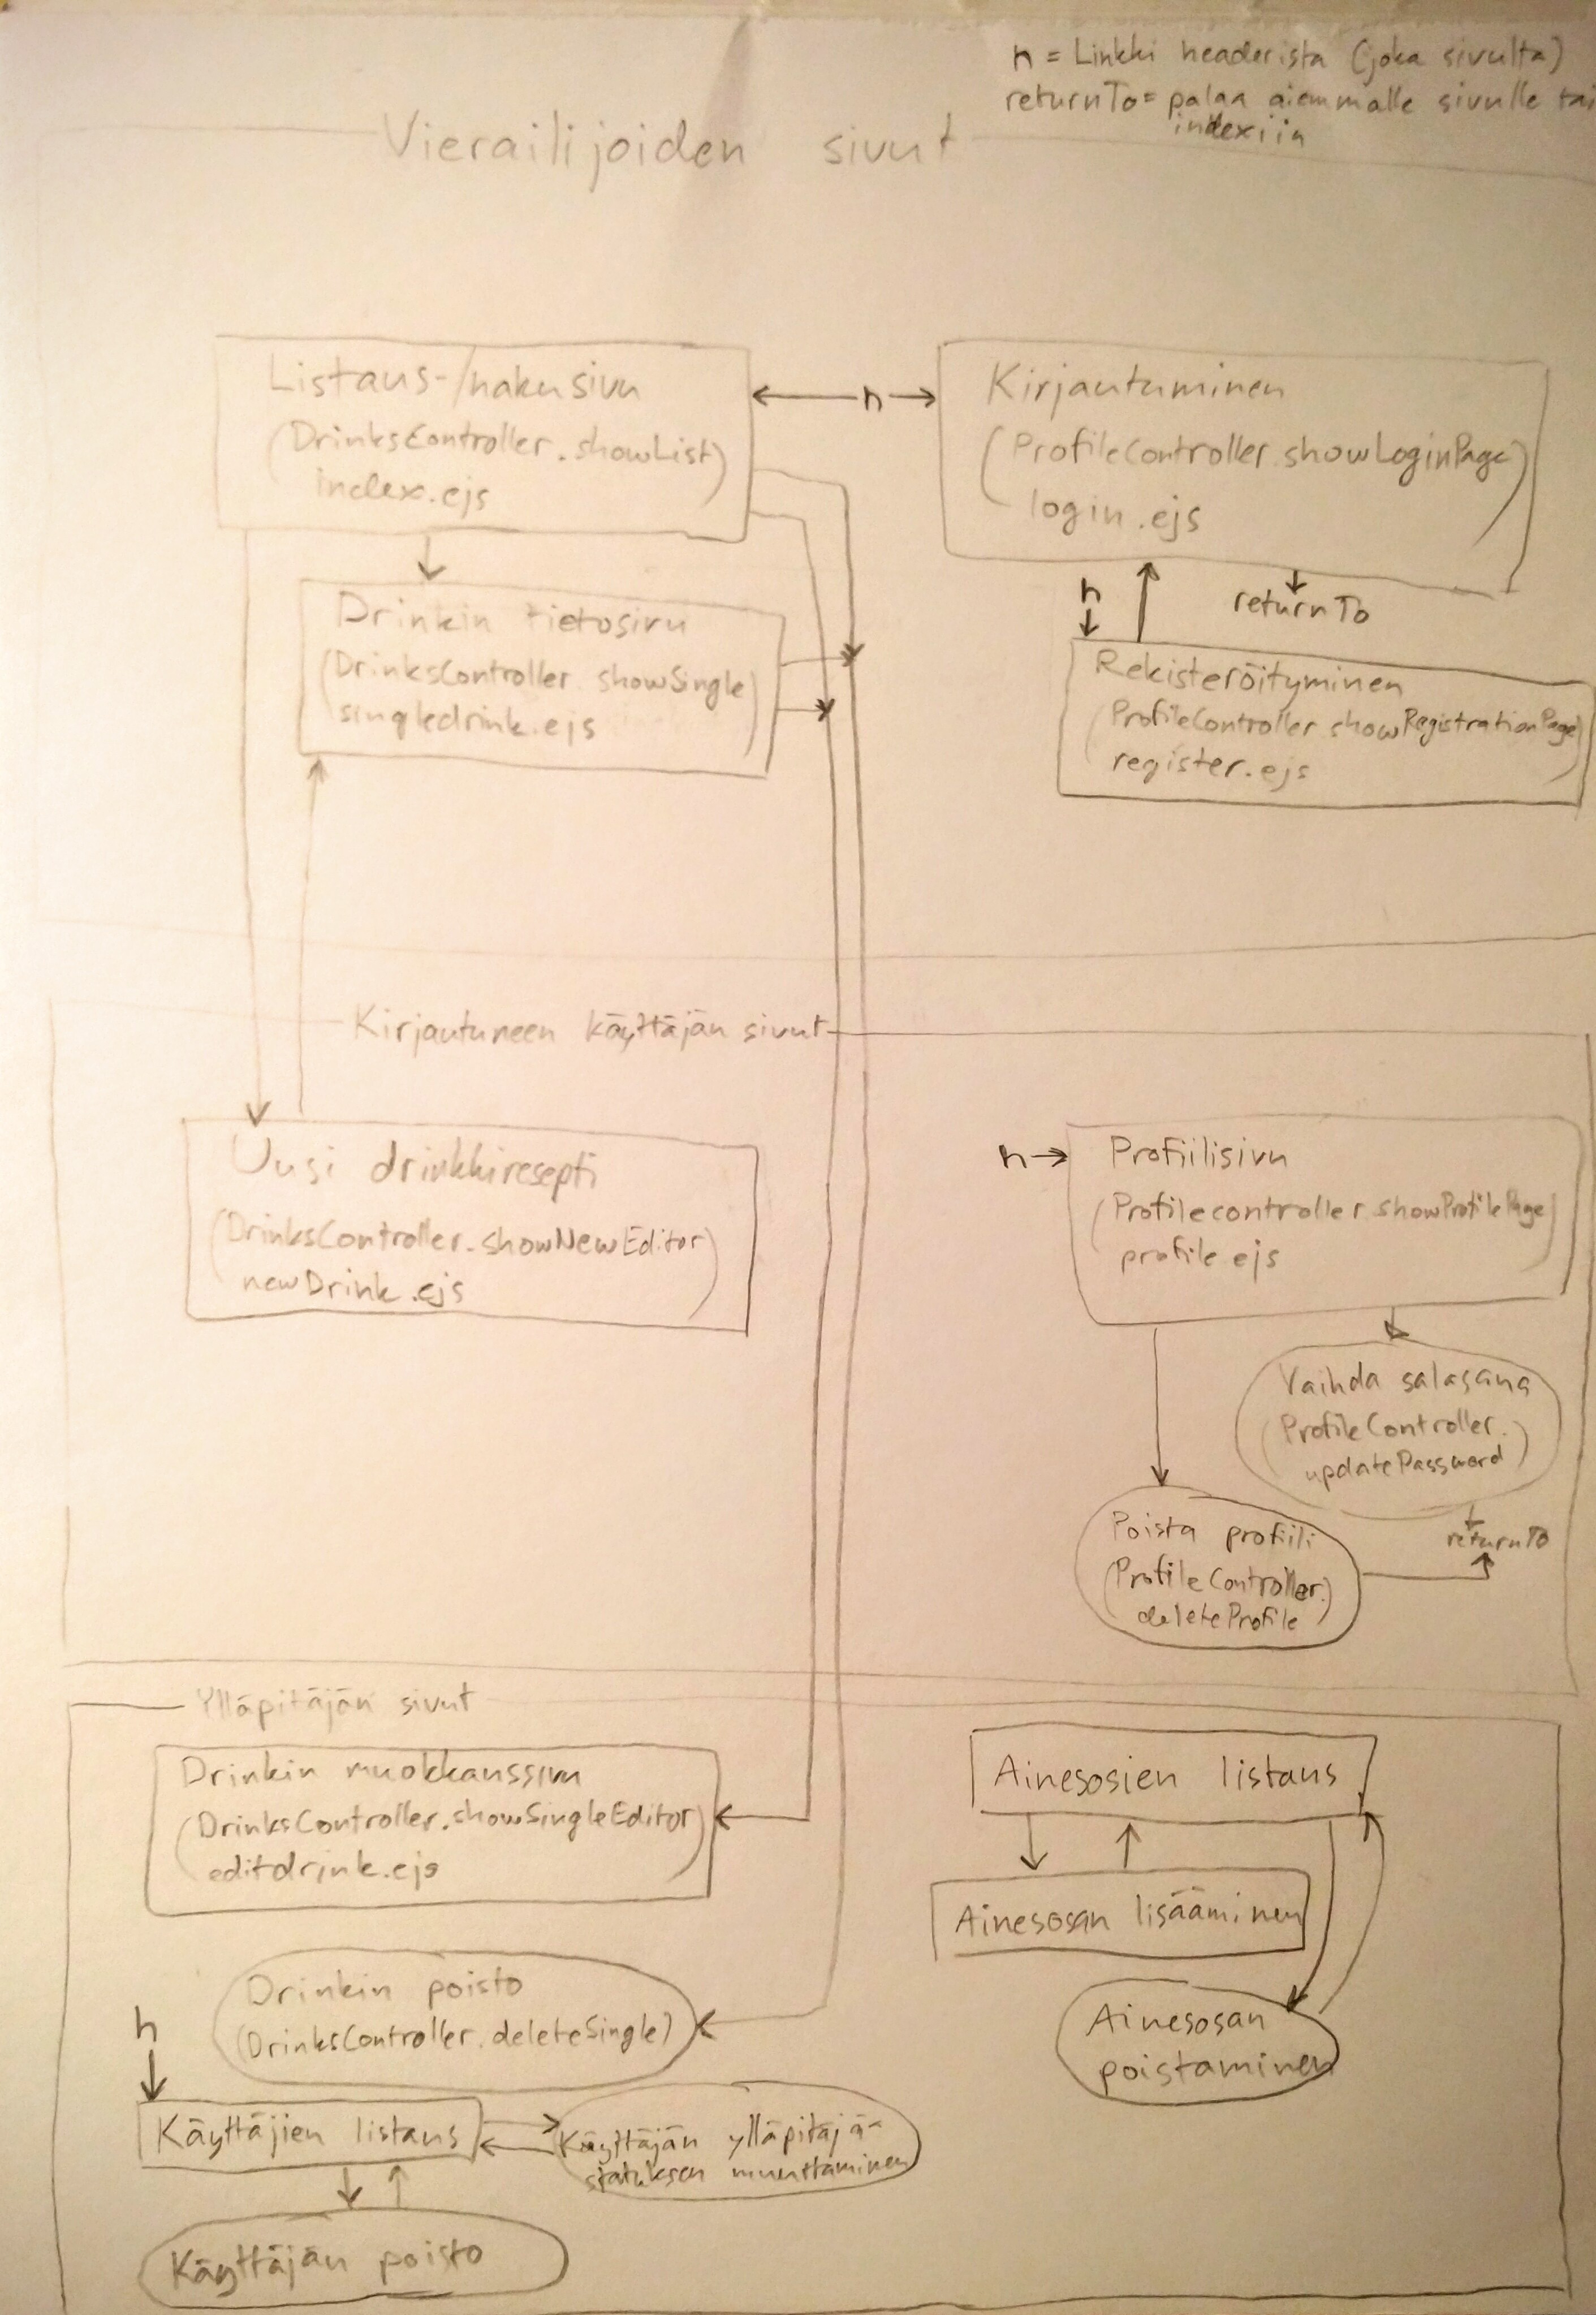 n = Linkki headerista (joka sivulta)
returnTo = palaa aiemmalle sivulle tai
indexiin
Vierailijoiden sivut
Listaus-/hakusivu
(DrinksController.showList)
index.ejs
n
Kirjautuminen
(ProfileController.showLoginPage)
login.ejs
n
returnTo
Drinkin tietosivu
(DrinksController.showSingle)
singledrink.ejs
Rekisteröityminen
(ProfileController.showRegistrationPage)
register.ejs
Kirjautuneen käyttäjän sivut
Uusi drinkkiresepti
(DrinksController.showNewEditor)
newDrink.ejs
n
Profiilisivu
(Profilecontroller.showProfilePage)
profile.ejs
Vaihda salasana
(ProfileController.
updatePassword)
returnTo
Poista profiili
(ProfileController.)
deleteProfile
Ylläpitäjän sivut
Drinkin muokkaussivu
(DrinksController.showSingleEditor)
editdrink.ejs
Ainesosien listaus
Ainesosan lisääminen
Ainesosan
poistaminen
Drinkin poisto
(DrinksController.deleteSingle)
n
Käyttäjien listaus
Käyttäjän ylläpitäjä-
statuksen muuttaminen
Käyttäjän poisto